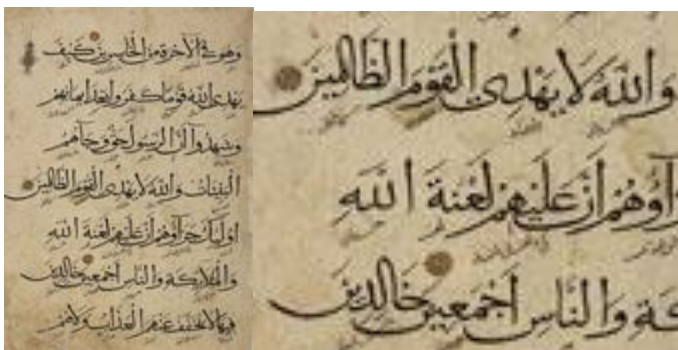 وهو في الآخرة من الخاسرين كيف
يهدي الله قوما كفروا بعد ايمانهم
وشهدوا أن الرسول حق وجآهم
البينات والله لا يهدي القوم الظالمين
اولئك جزآؤهم أن عليهم لعنة الله
والملائكة والناس اجمعين خالدين
فيها لا يخفف عنهم العذاب ولا هم
وَاللهُ لَا يَهْدِي الْقَوْمَ الظَّالِمِينَ
زآؤُهُمْ أَنَّ عَلَيْهِمْ لَعْنَةَ اللهِ
كَةِ وَالنَّاسِ اَجْمَعِينَ خَالِدِينَ